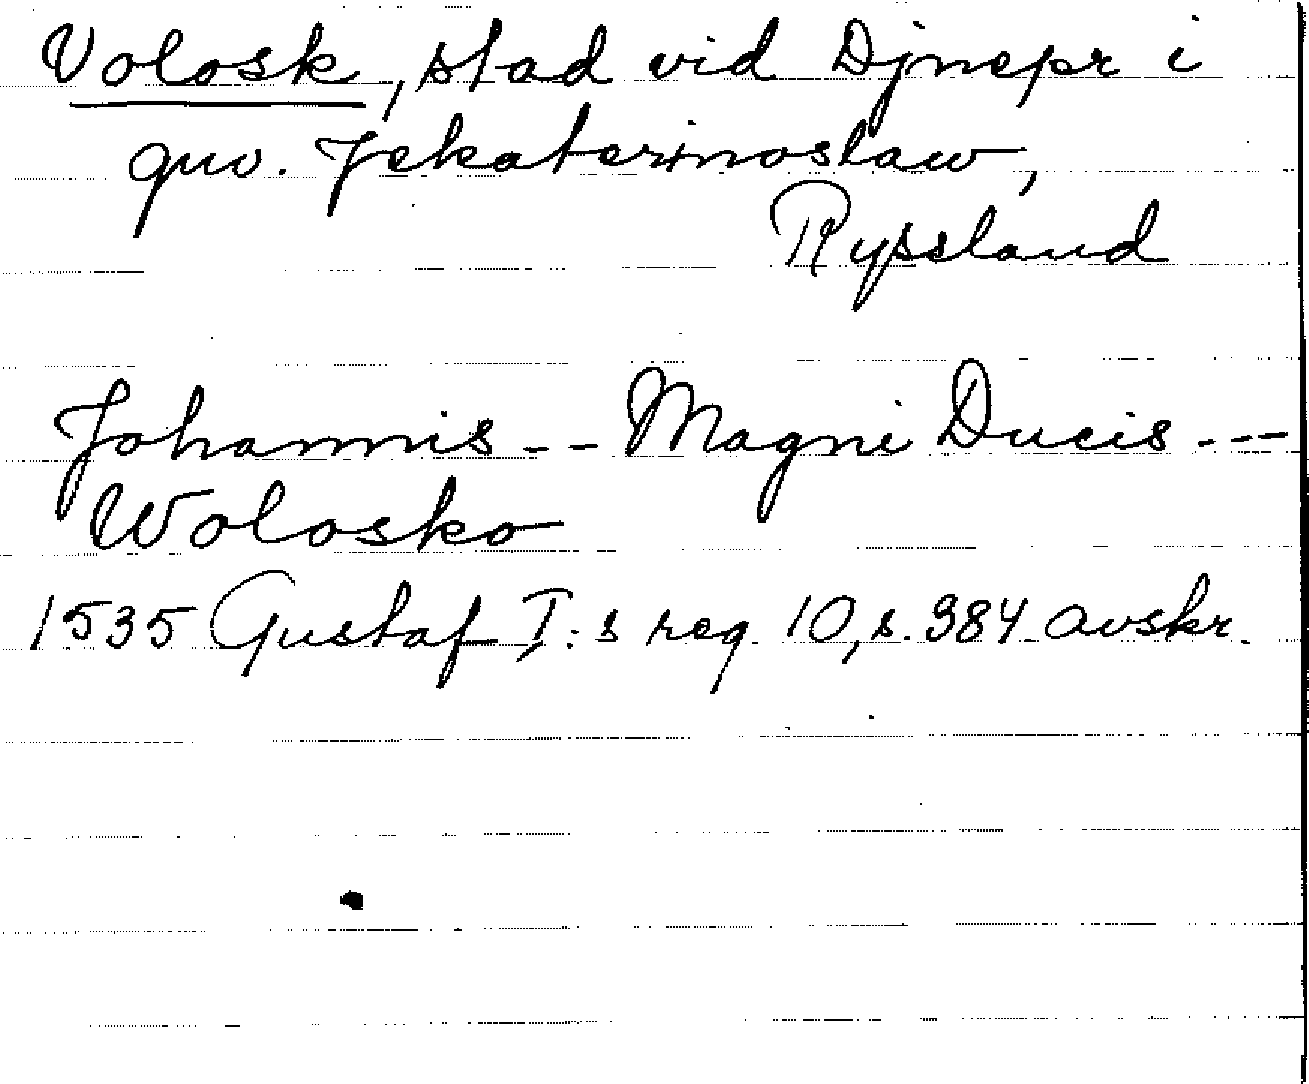 Volosk, stad vid Djnepr i
guv. Jekaterinoslaw,
Ryssland
Johannis -- Magni Ducis ---
Wolosko
1535 Gustaf I:s reg. 10, s. 384 avskr.